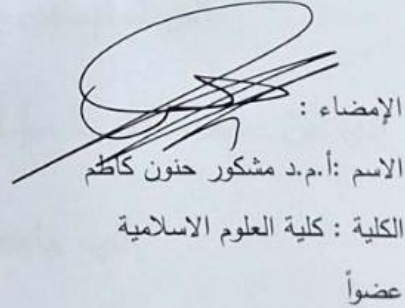 الإمضاء :
الاسم :أ.م.د مشكور حنون كاظم
الكلية : كلية العلوم الاسلامية
عضواً